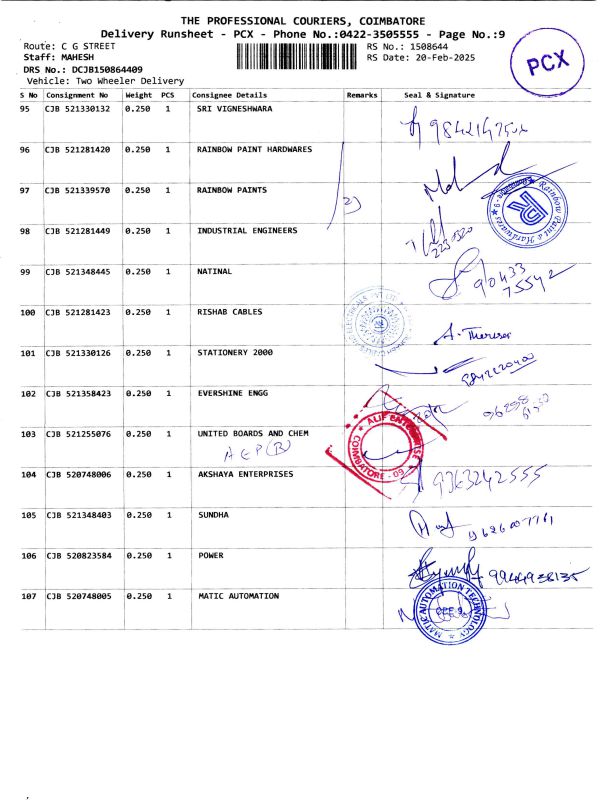 THE PROFESSIONAL COURIERS, COIMBATORE
Delivery Runsheet - PCX - Phone No.:0422-3505555 - Page No.:9
Route: C G STREET
RS No.: 1508644
Staff: MAHESH
RS Date: 20-Feb-2025
DRS No.: DCJB150864409
Vehicle: Two Wheeler Delivery
PCX
S No Consignment No Weight PCS Consignee Details Remarks Seal & Signature
95 CJB 521330132 0.250 1 SRI VIGNESHWARA
96 CJB 521281420 0.250 1 RAINBOW PAINT HARDWARES
97 CJB 521339570 0.250 1 RAINBOW PAINTS
98 CJB 521281449 0.250 1 INDUSTRIAL ENGINEERS
99 CJB 521348445 0.250 1 NATINAL
90433
75542
100 CJB 521281423 0.250 1 RISHAB CABLES
101 CJB 521330126 0.250 1 STATIONERY 2000
102 CJB 521358423 0.250 1 EVERSHINE ENGG
ALIF ENTERPRISE
COIMBATORE - 09
103 CJB 521255076 0.250 1 UNITED BOARDS AND CHEM
AEP (B)
104 CJB 520748006 0.250 1 AKSHAYA ENTERPRISES
9363242555
105 CJB 521348403 0.250 1 SUNDHA
106 CJB 520823584 0.250 1 POWER
107 CJB 520748005 0.250 1 MATIC AUTOMATION
MATIC AUTOMATION TECHNOLOGY